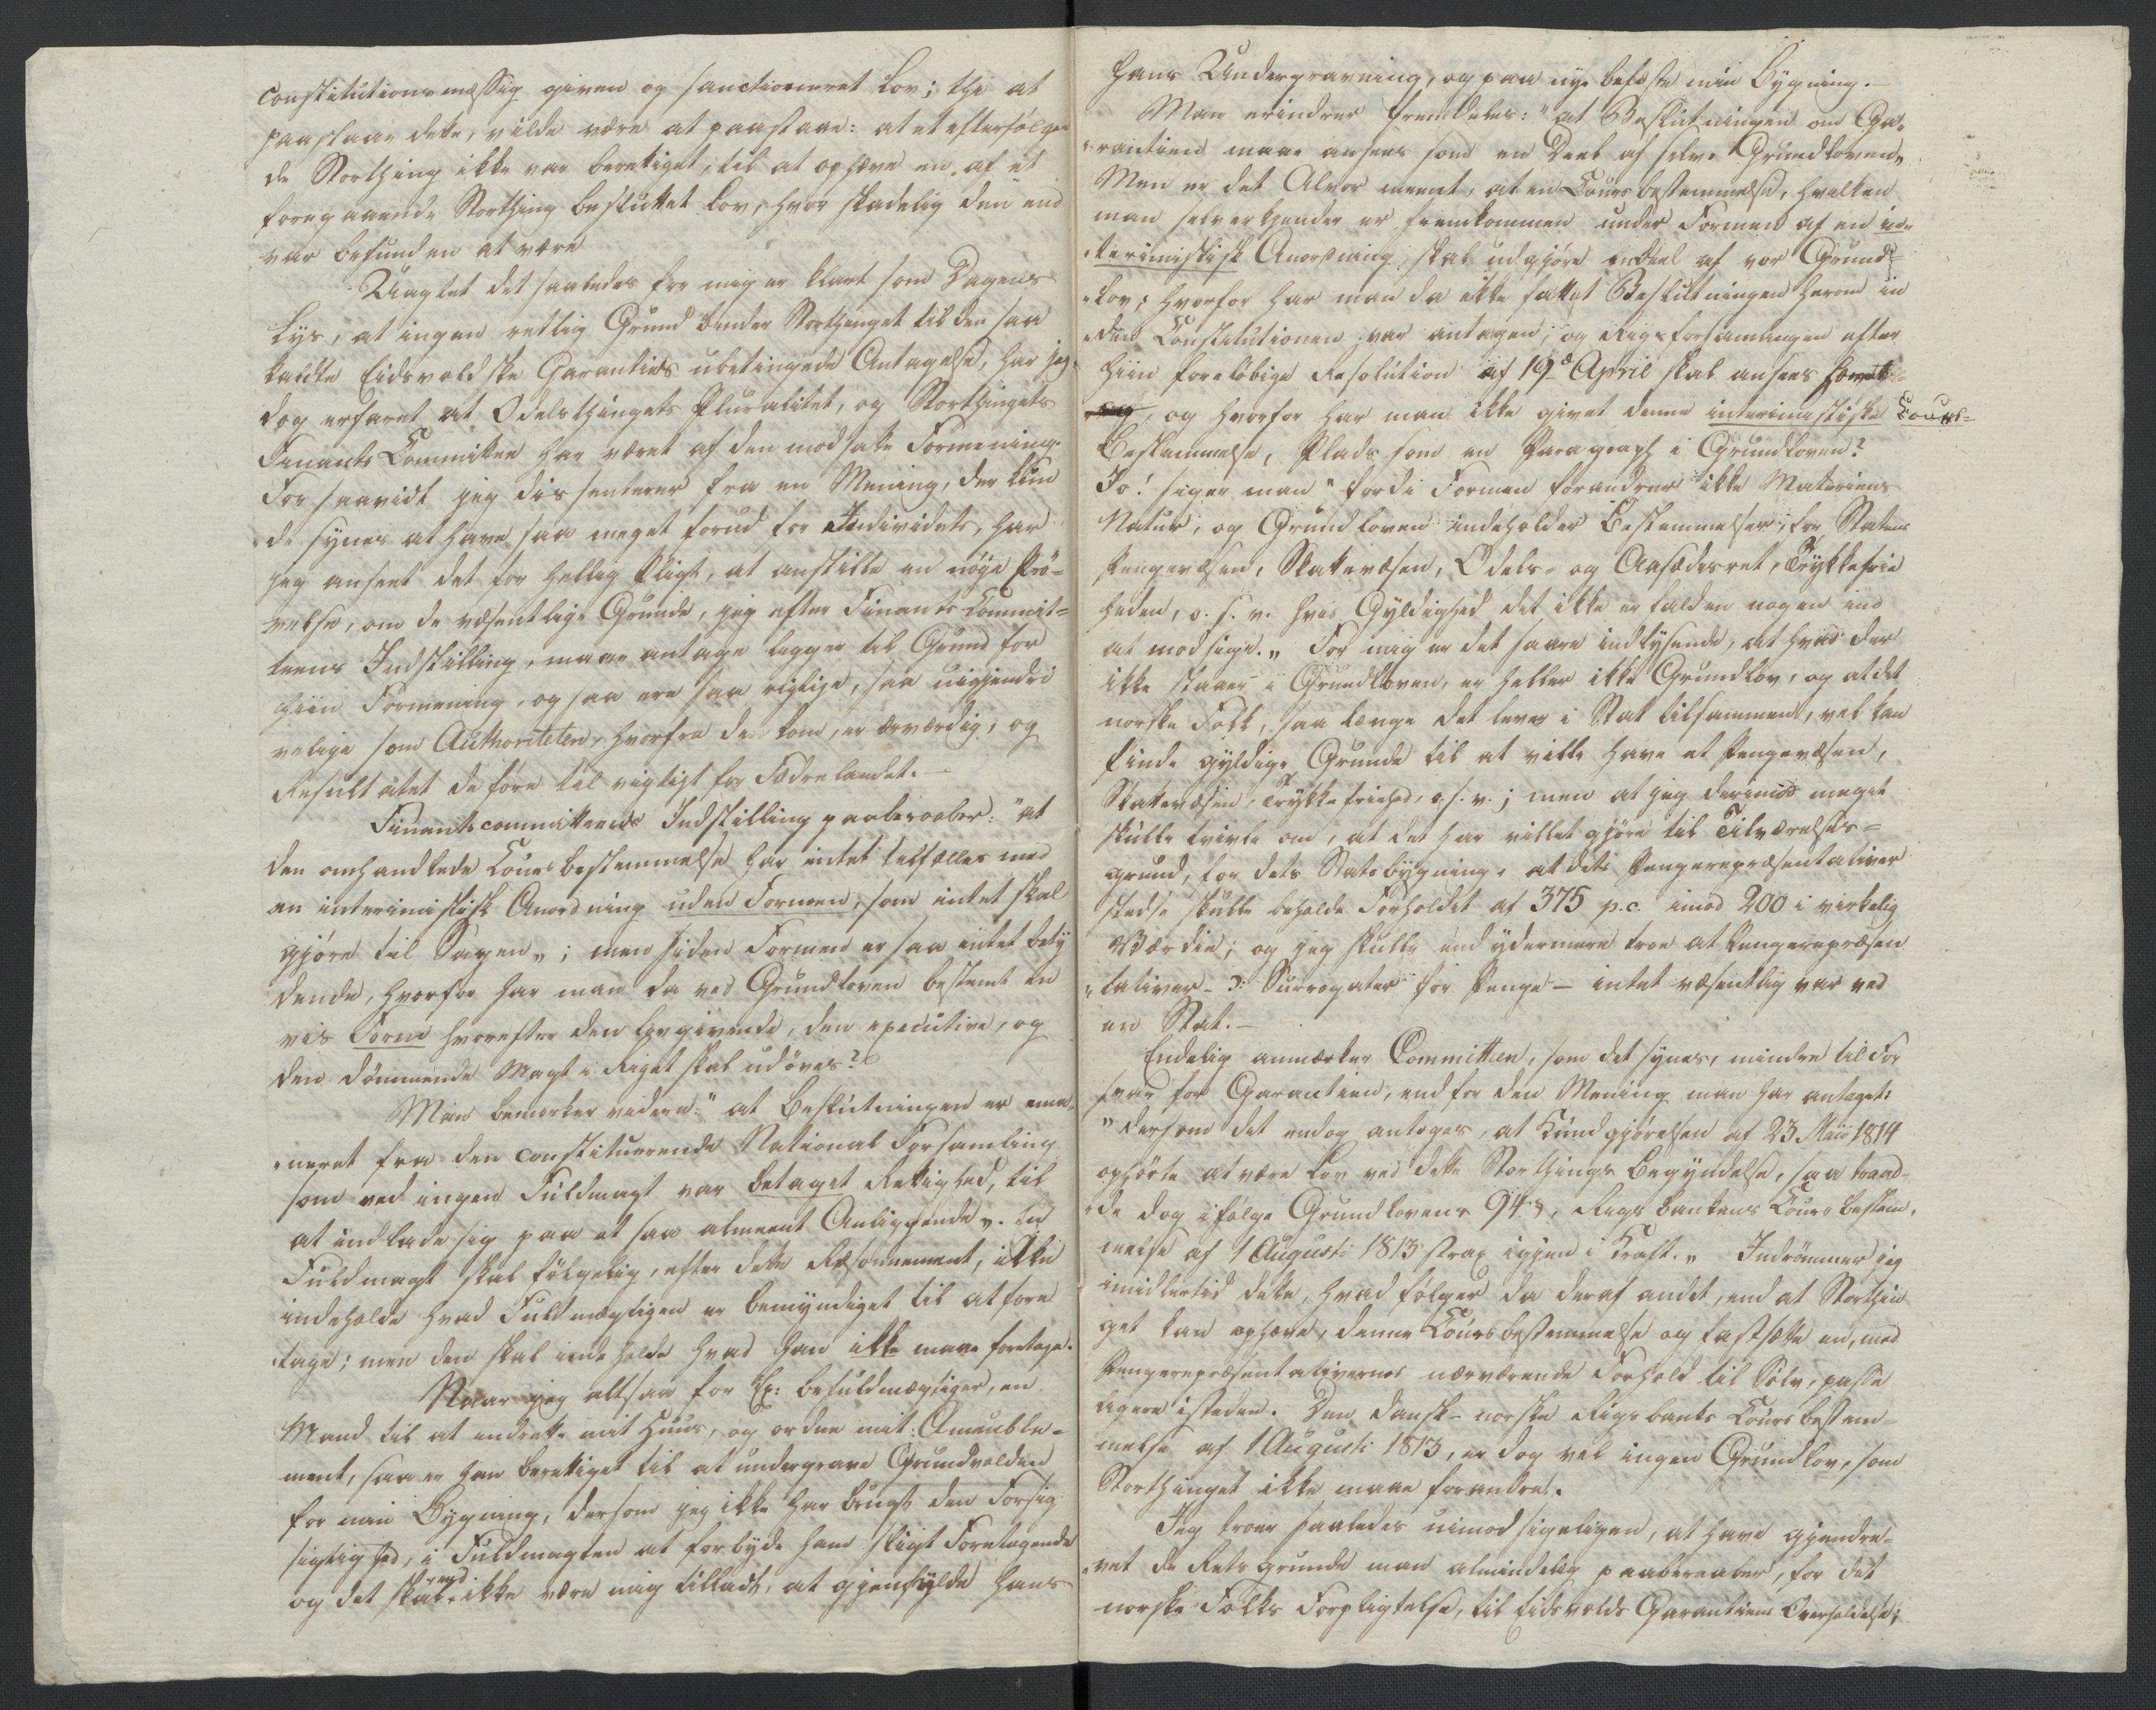 constitutionsmæssig given og sanctioneret Lov; thi at
paastaae dette, vilde være at paastaae: at et efterfølgen
de Storthing ikke var berettiget, til at ophæve en af et
foregaaende Storthing besluttet Lov, hvor skadelig den end
var befunden at være
Uagtet det saaledes for mig er klart som Dagens
Lys, at ingen retlig Grund binder Storthinget til den saa
kaldte Eidsvoldske Garanties ubetingede Antagelse, har jeg
dog erfaret at Odelsthingets Pluralitet, og Storthingets
Finants Committee har været af den modsatte Formening.
For saavidt jeg dissenterer fra en Mening, der kun
de synes at have saa meget forud for Individets, har
jeg anseet det for hellig Pligt, at anstille en nøye Prø-
velse, om de væsentlige Grunde, jeg efter Finants Commit-
teens Indstilling, maae antage ligger til Grund for
hiin Formening, og saa ere saa rigtige, saa uigjendri
velige som Authoriteten, hvorfra den kom, er ærværdig, og
Resultatet de føre til vigtigt for Fædrelandet.-
Finantscommitteens Indstilling paaberaaber: "at
den omhandlede Coursbestemmelse har intet tilfælles med
en interimistisk Anordning uden Formen, som intet skal
gjøre til Sagen"; men siden Formen er saa intet bety
dende, hvorfor har man da ved Grundloven bestemt en
vis Form hvorefter den lovgivende, den executive, og
den dømmende Magt i Riget skal udøves?
Man bemærker videre: "at Beslutningen er ema-
neret fra den constituerende National Forsamling
som ved ingen Fuldmagt var betaget Rettighed, til
at indlade sig paa et saa almeent Anliggende". En
Fuldmagt skal følgelig, efter dette Ræsonnement, ikke
indeholde hvad Fuldmægtigen er bemyndiget til at fore
tage; men den skal indeholde hvad han ikke maae foretage.
Naar jeg altsaa for Ex: befuldmægtiger, en
Mand til at indrette mit Huus, og ordne mit Ameuble-
ment, saa er han berettiget til at undergrave Grundvolden
for min Bygning, dersom jeg ikke har brugt den Forsig
tighed, i Fuldmagten at forbyde ham sligt Foretagende
og det skal end ikke være mig tilladt, at gjenfylde hans
hans Undergravning, og paa nye befæste min Bygning.-
Man erindrer fremdeles: "at Beslutningen om Ga-
rantien maae ansees som en Deel af selve Grundloven"
Men er det Alvor meent, at en Coursbestemmelse, hvilken
man selv erkjender er fremkommen under Formen af en in-
terimistisk Anordning, skal udgjøre endeel af vor Grund-
Lov; hvorfor har man da ikke fattet Beslutningen herom in
den Constitutionen var antagen, og Rigsforsamlingen efter
hiin foreløbige Resolution af 19d April skal ansees hævet
, og hvorfor har man ikke givet denne interimistiske Cours-
Bestemmelse, Plads som en Paragraph i Grundloven?
Jo! siger man "fordi Formen forandrer ikke Materiens
Natur, og Grundloven indeholder Bestemmelser for Statens
Pengevæsen, Skattevæsen, Odels- og Aasædesret, Trykkefrie
heden, o. s. v. hvis Gyldighed det ikke er falden nogen ind
at modsige." For mig er det saare indlysende, at hvad der
ikke staaer i Grundloven, er heller ikke Grundlov, og at det
norske Folk, saa længe det lever i Stat tilsammen, vel kan
finde gyldige Grunde til at ville have et Pengevæsen,
Skattevæsen, Trykkefriehed, o.s.v.; men at jeg derimod meget
skulle tvivle om, at det har villet gjøre til Tilværelses-
grund, for dets Statsbygning, at dets Pengerepræsentativer
stedse skulle beholde Forholdet af 375 p.c. imod 200 i virkelig
Værdie; og jeg skulle end ydermere troe at Pengerepræsen
tativer - ɔ: Surrogater for Penge - intet væsentlig var ved
en Stat.-
Endelig anmærker Committeen, som det synes, mindre til For
svar for Garantien, end for den Mening man har antaget:
"dersom det endog antages, at Kundgjørelsen af 23 Maii 1814
ophørte at være Lov ved dette Storthings Begyndelse, saa traad-
de dog ifølge Grundlovens 94 §, Rigsbankens Coursbestem-
melse af 1 Augusti 1813 strax igjen i Kraft." Indrømmer jeg
imidlertid dette, hvad følger da deraf andet, end at Storthin
get kan ophæve, denne Coursbestemmelse og fastsætte en, med
Pengerepræsentativernes nærværende Forhold til Sølv, passe
ligere isteden. Den dansk-norske Rigsbanks Coursbestem-
melse af 1 Augusti 1813, er dog vel ingen Grundlov, som
Storthinget ikke maae forandre.
Jeg troer saaledes uimodsigeligen, at have gjendre-
vet de Retsgrunde man almindelig paaberaaber, for det
norske Folks Forpligtelse, til Eidsvolds Garantiens Overholdelse;